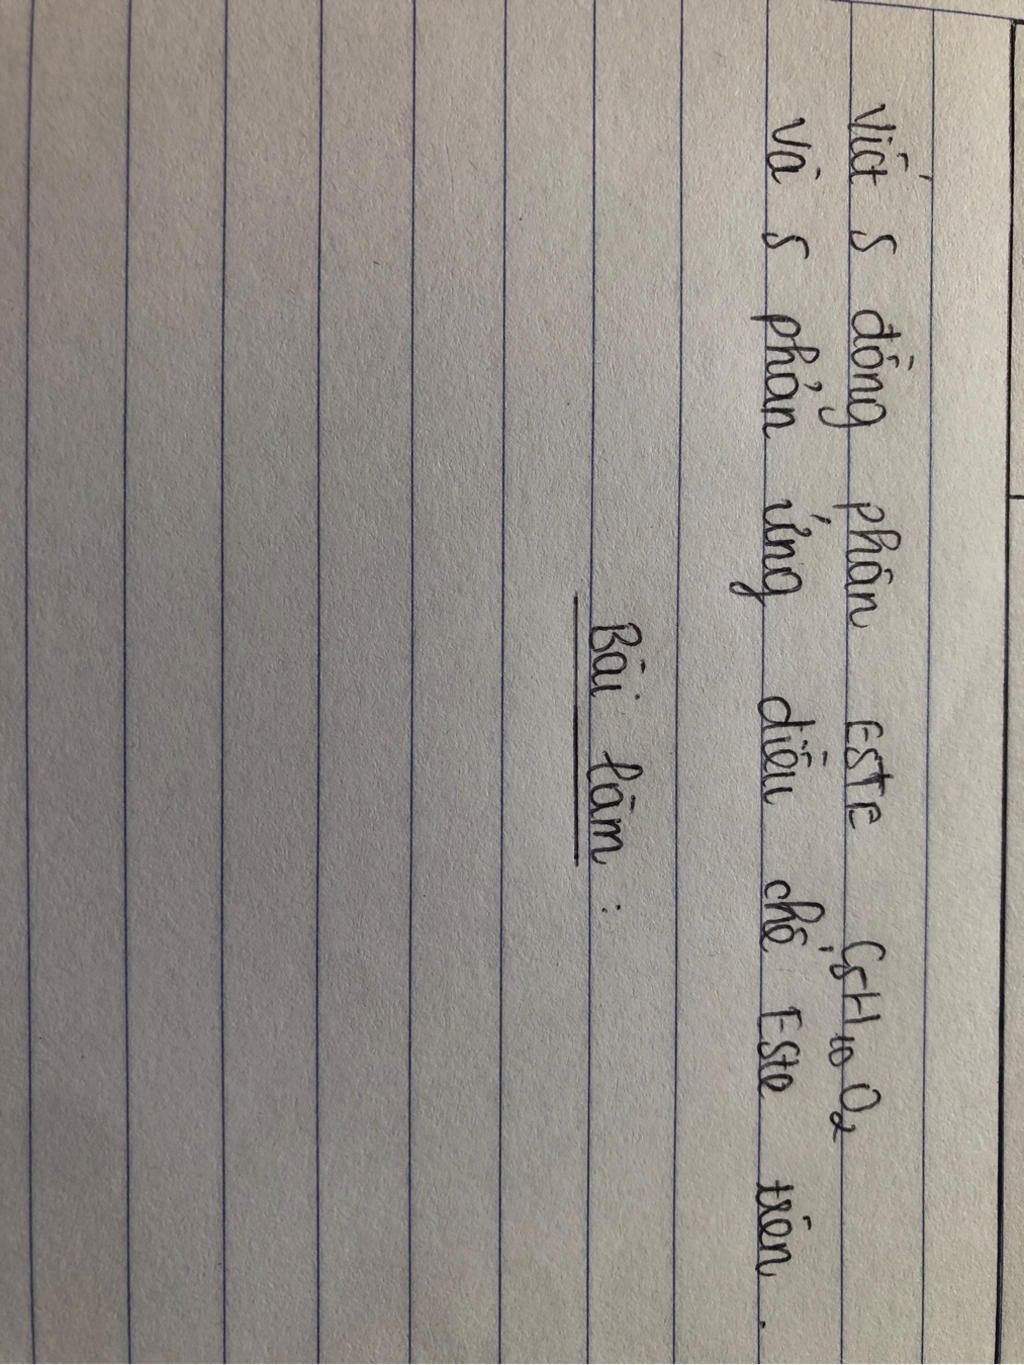 Viết 5 đồng phân ESTE C₅H₁₀O₂
và 5 phản ứng điều chế Este trên.
Bài làm: